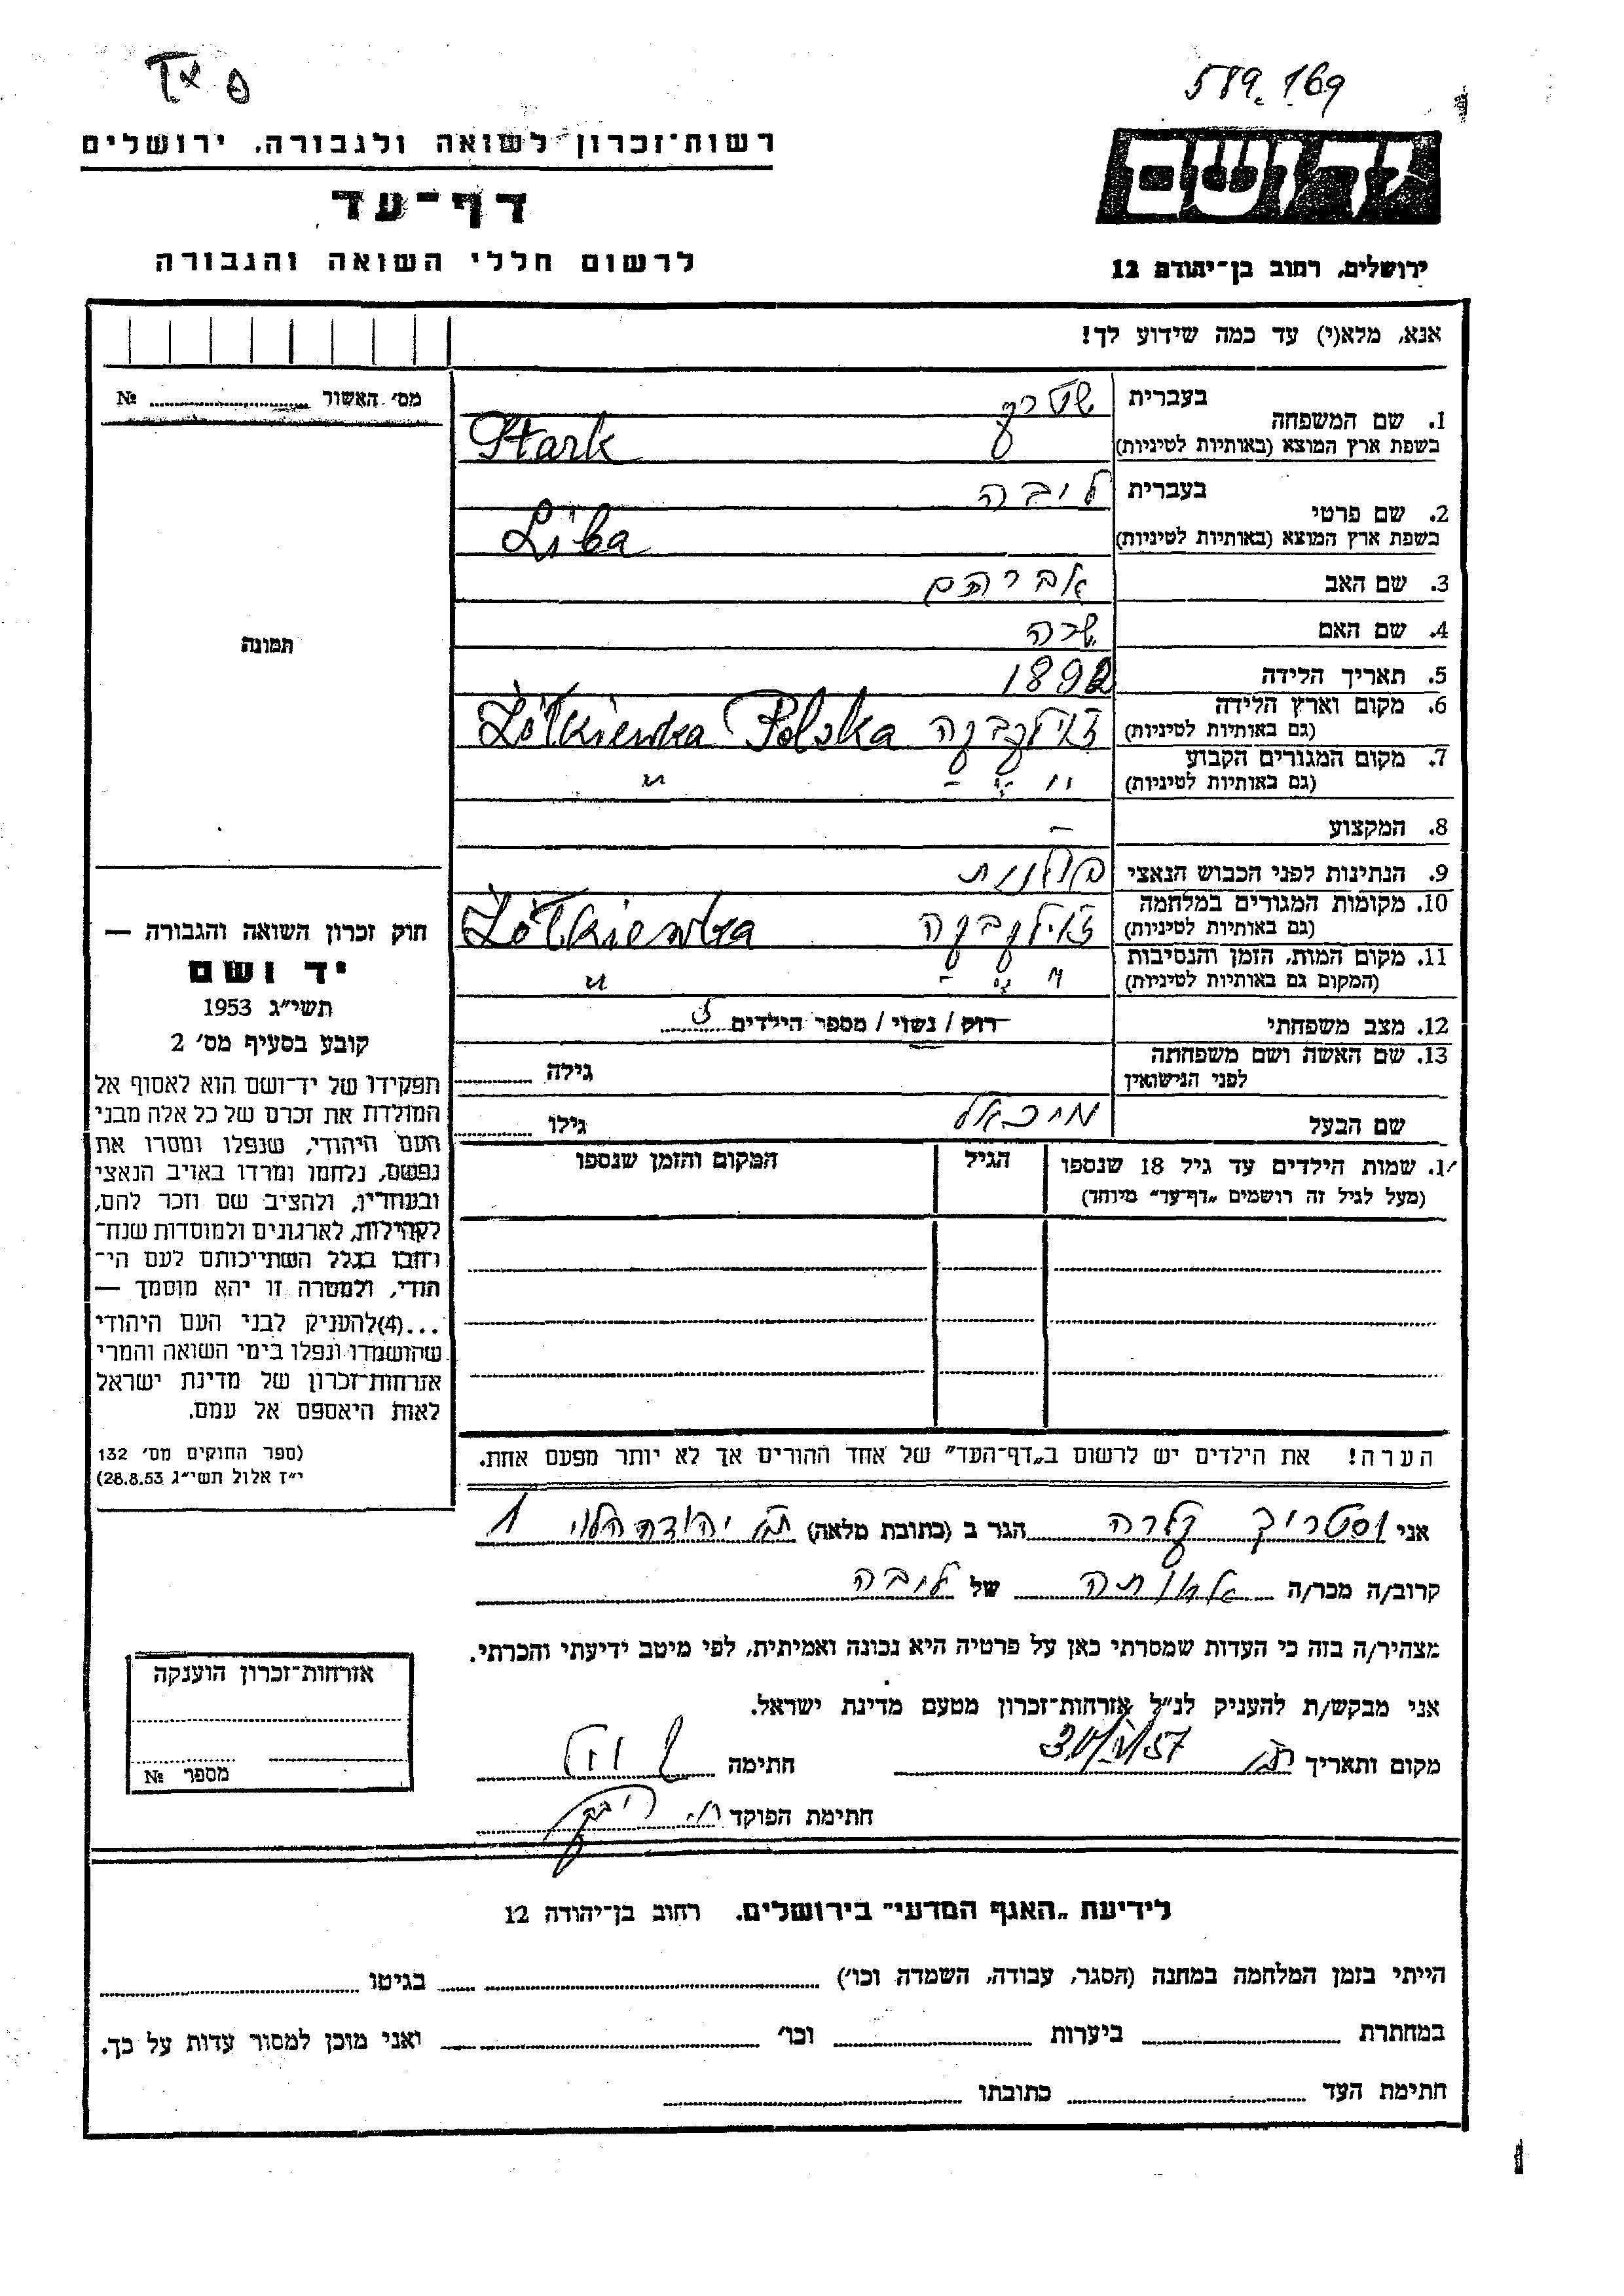 589.169
רשות־זכרון לשואה ולגבורה, ירושלים
דף־עד
לרשום חללי השואה והגבורה
ירושלים, רחוב בן־יהודה 12
אנא, מלא(י) עד כמה שידוע לך!
מס׳ האשור № 
1. שם המשפחה בעברית שטרק
בשפת ארץ המוצא (באותיות לטיניות) Stark
2. שם פרטי בעברית ליבה
בשפת ארץ המוצא (באותיות לטיניות) Liba
3. שם האב אברהם
4. שם האם שרה
5. תאריך הלידה 1892
6. מקום וארץ הלידה (גם באותיות לטיניות) Żółkiewka Polska
7. מקום המגורים הקבוע (גם באותיות לטיניות) " - " - "
8. המקצוע -
9. הנתינות לפני הכבוש הנאצי פולנית
10. מקומות המגורים במלחמה (גם באותיות לטיניות) Żółkiewka
11. מקום המות, הזמן והנסיבות (המקום גם באותיות לטיניות) " - " - "
12. מצב משפחתי רוק / נשוי / מספר הילדים 5
13. שם האשה ושם משפחתה לפני הנישואין גילה
שם הבעל מיכאל גילו
תמונה
חוק זכרון השואה והגבורה —
יד ושם
תשי״ג 1953
קובע בסעיף מס׳ 2
תפקידו של יד־ושם הוא לאסוף אל
המולדת את זכרם של כל אלה מבני
העם היהודי, שנפלו ומסרו את
נפשם, נלחמו ומרדו באויב הנאצי
ובעוזריו, ולהציב שם וזכר להם,
לקהילות, לארגונים ולמוסדות שנח־
רחבו בגלל השתייכותם לעם הי־
הודי, ולמטרה זו יהא מוסמך —
...(4) להעניק לבני העם היהודי
שהושמדו ונפלו בימי השואה והמרי
אזרחות־זכרון של מדינת ישראל
לאות היאספם אל עמם.
(ספר החוקים מס׳ 132
י״ז אלול תשי״ג 28.8.53)
1. שמות הילדים עד גיל 18 שנספו הגיל המקום והזמן שנספו
(מעל לגיל זה רושמים „דף־עד״ מיוחד)
הערה! את הילדים יש לרשום ב„דף־העד״ של אחד ההורים אך לא יותר מפעם אחת.
אני קלרה הגר ב (כתובת מלאה) יהודה הלוי 1
קרוב/ה מכר/ה של ליבה
מצהיר/ה בזה כי העדות שמסרתי כאן על פרטיה היא נכונה ואמיתית, לפי מיטב ידיעתי והכרתי.
אני מבקש/ת להעניק לנ״ל אזרחות־זכרון מטעם מדינת ישראל.
מקום ותאריך חתימה
חתימת הפוקד
אזרחות־זכרון הוענקה
מספר №
לידיעת „האגף המדעי״ בירושלים, רחוב בן־יהודה 12
הייתי בזמן המלחמה במחנה (הסגר, עבודה, השמדה וכו׳) בגיטו
במחתרת ביערות וכו׳ ואני מוכן למסור עדות על כך.
חתימת העד כתובתו